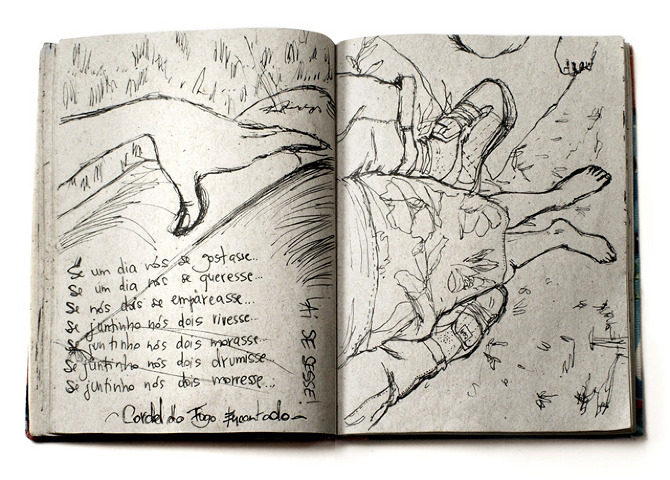 Se um dia nós se gostasse...
Se um dia nós se queresse...
Se nós dos se empareasse...
Se juntinho nós dois vivesse...
Se juntinho nós dois morasse...
Se juntinho nós dois drumisse...
Se juntinho nós dois morresse...
~ Cordel do Fogo Encantado ~
Ai SE SESSE!